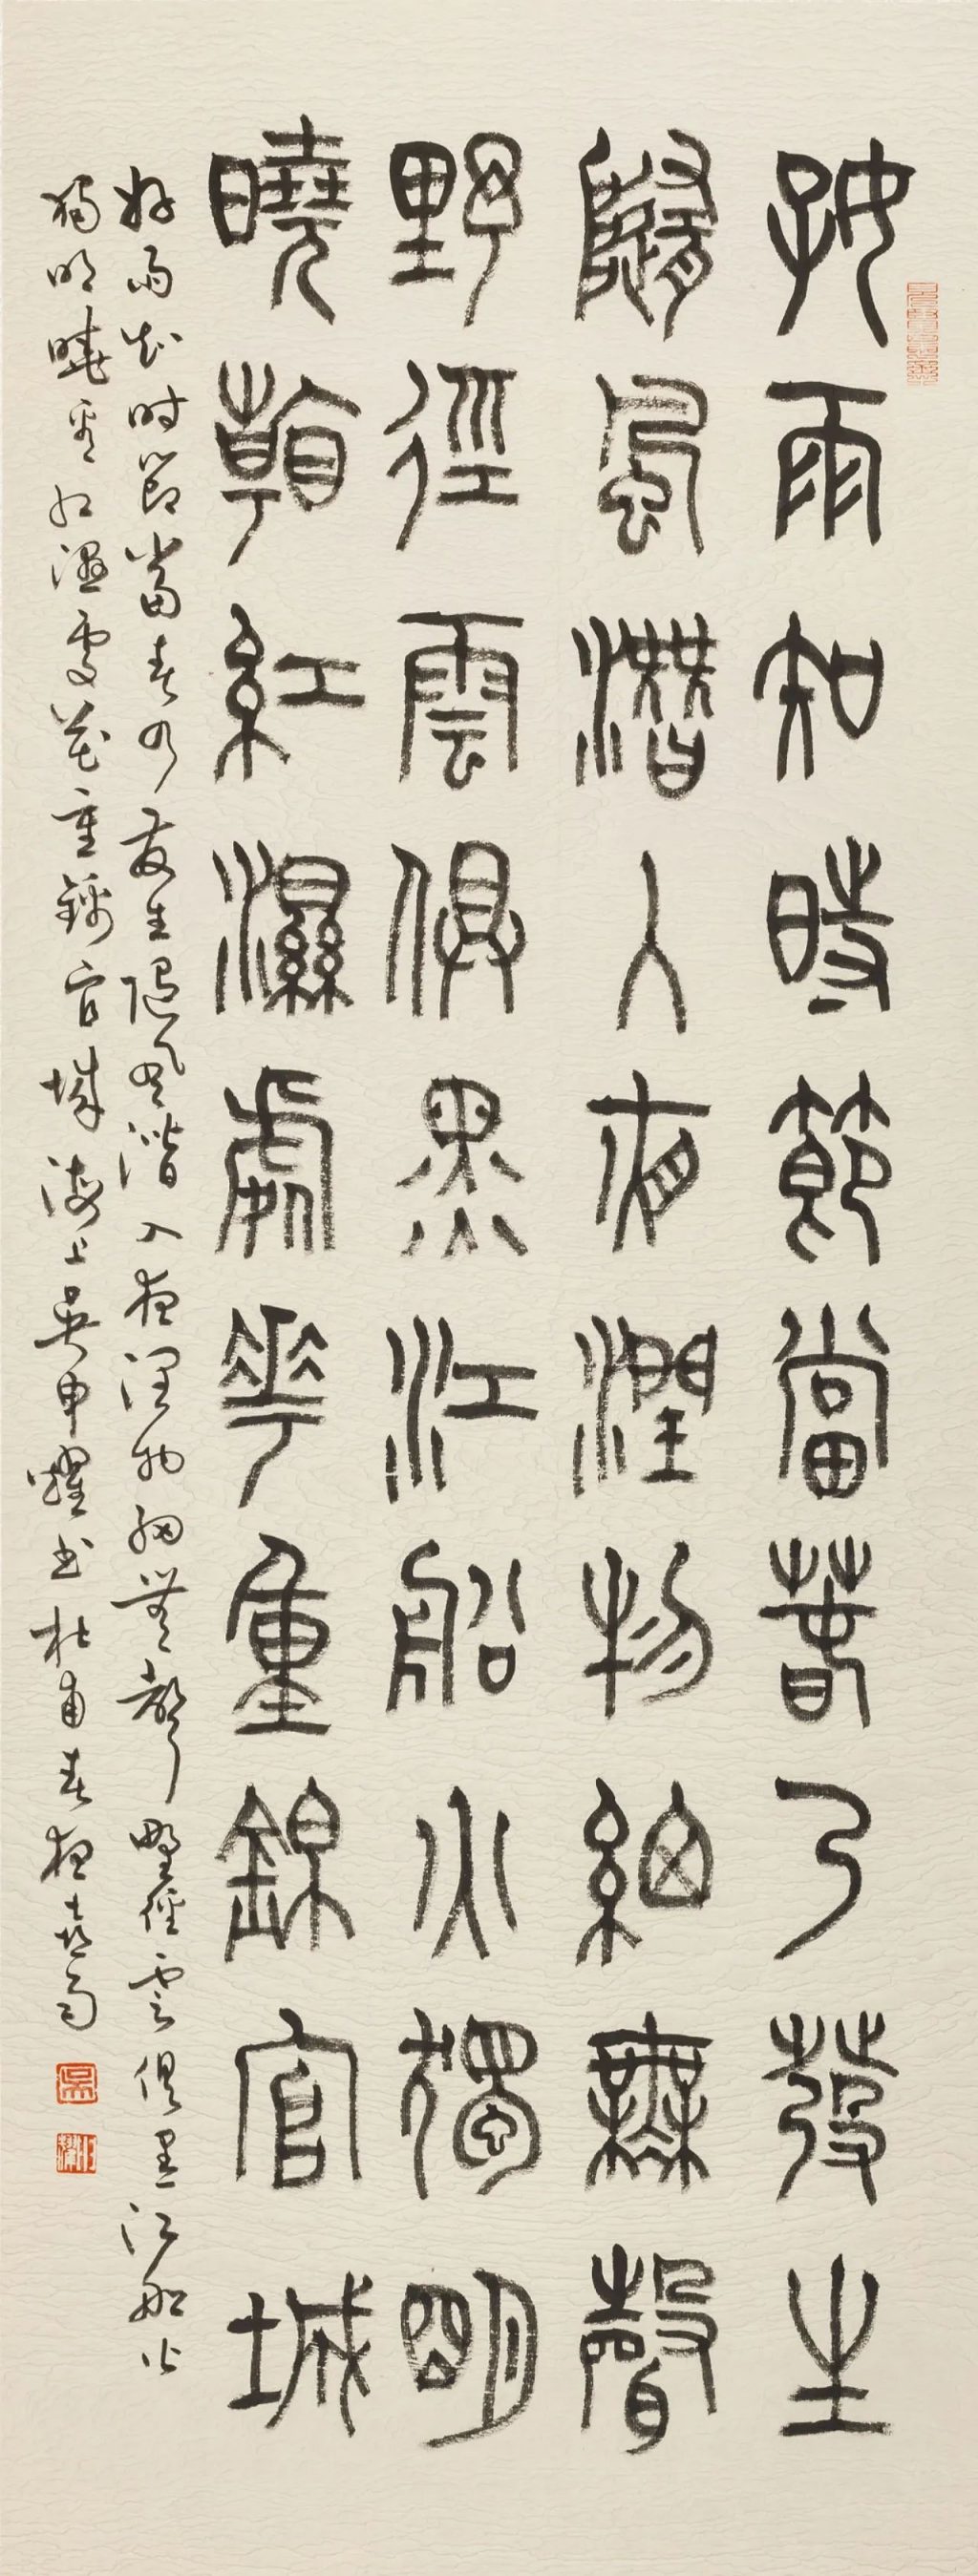 好雨知時節當春乃發生
隨風潛入夜潤物細無聲
野徑雲俱黑江船火獨明
曉看紅濕處花重錦官城
好雨知时節當春乃發生隨風潛入夜潤物細無聲野徑雲俱黑江船火
獨明曉看紅濕處花重錦官城海上吴申耀书杜甫春夜喜雨